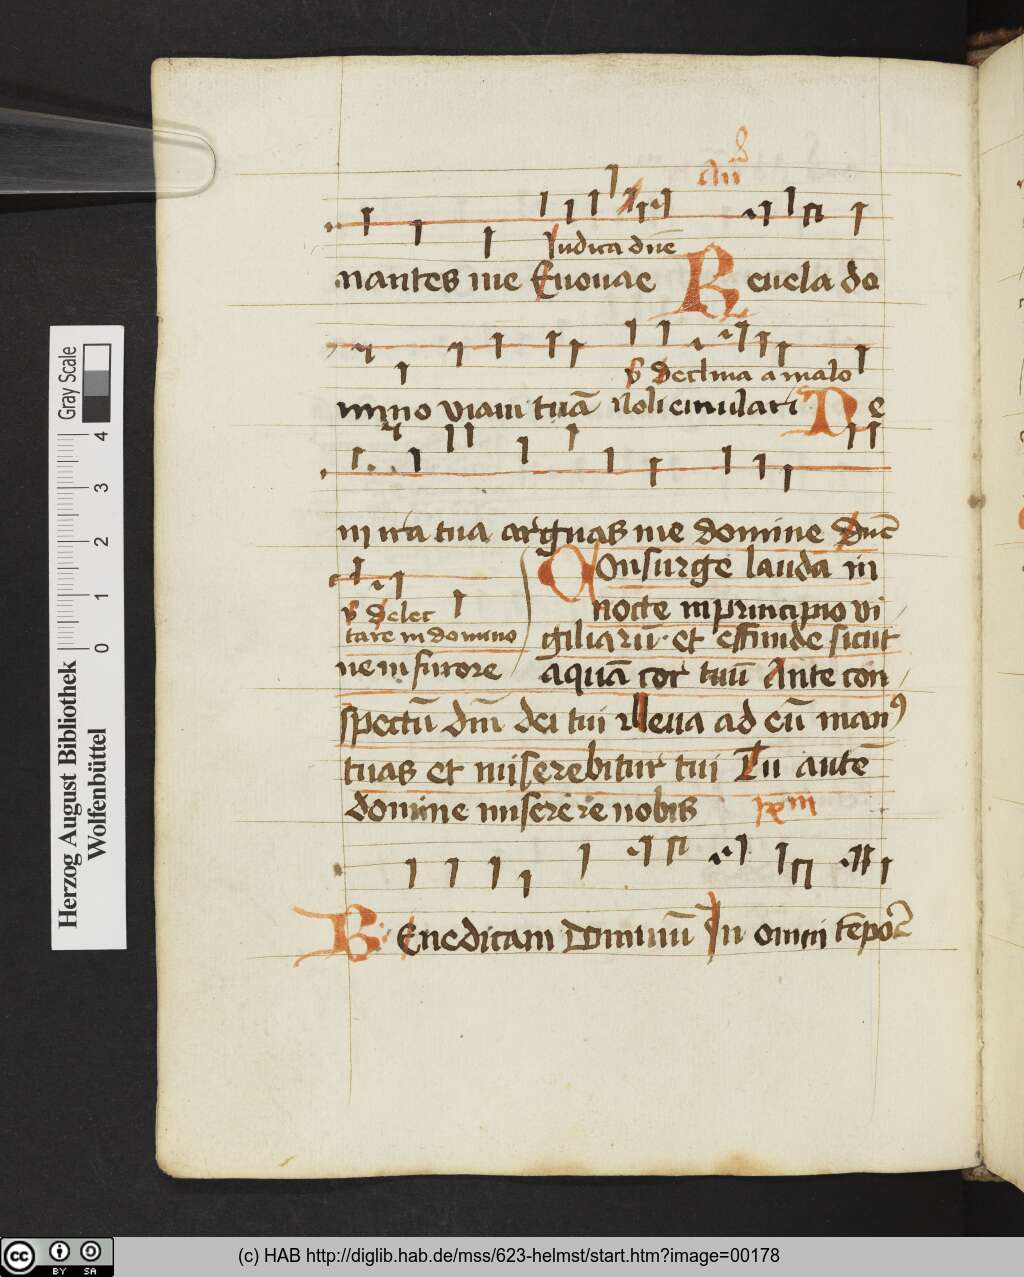 añ
Iudica dñe
nantes me Euouae Reuela do
v̄ Declina a malo
mino viam tuā Noli emulari Ne
in ira tua arguas me domine dñe
v̄ Delec
tare in domino
ne in furore
Consurge lauda in
nocte in principio vi
giliarū et effunde sicut
aquā cor tuū Ante con
spectū dñi dei tui R Leua ad eū manꝰ
tuas et miserebitur tui Tu autē
domine miserere nobis
Benedicam Dominū In omni tēpoꝛ
Herzog August Bibliothek
Wolfenbüttel
0 1 2 3 4
Gray Scale
cc BY SA
(c) HAB http://diglib.hab.de/mss/623-helmst/start.htm?image=00178